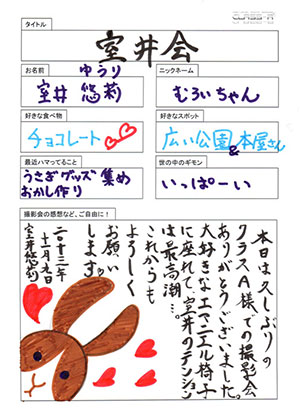 タイトル
室井会
お名前
ゆうり
室井 悠莉
ニックネーム
むろいちゃん
好きな食べ物
チョコレート
好きなスポット
広い公園&本屋さん
最近ハマってること
うさぎグッズ集め
おかし作り
世の中のギモン
いっぱーい
撮影会の感想など、ご自由に!
本日は久しぶりの
クラスA様での撮影会
ありがとうございました。
大好きなエマニエル椅子
に座れて、室井のテンション
は最高潮…。
これからも
よろしく
お願い
します。
二〇十二年
十一月九日
室井悠莉